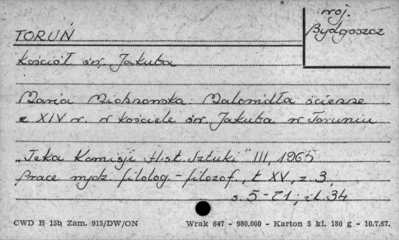 woj.
Bydgoszcz
TORUŃ
Kościół św. Jakuba
Maria Michnowska: Malowidła ścienne
z XIV w. w kościele św. Jakuba w Toruniu
„Teka Komisji Hist. Sztuki" III, 1965
Prace wydz filolog.-filozof., t XV, z 3,
s. 5-71; il. 34
CWD B 15b Zam. 915/DW/ON Wrak 647 - 980.000 - Karton 5 kl. 180 g - 10.7.67.